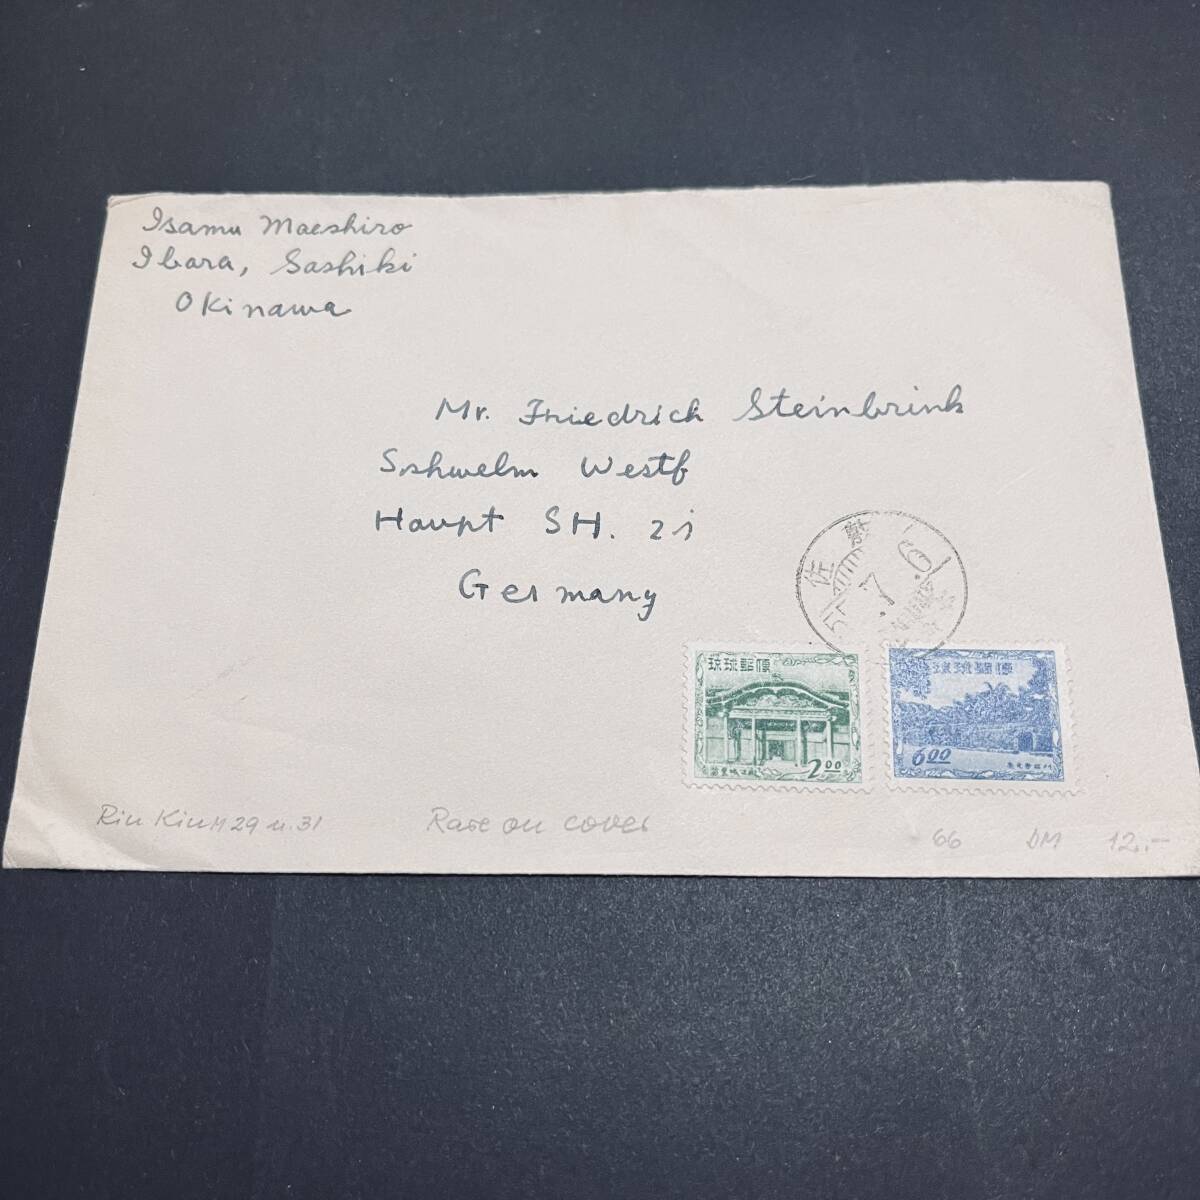 Isamu Maeshiro
Ibara, Sashiki
Okinawa
Mr. Friedrich Steinbrink
Sshwelm Westf
Haupt SH. 21
Germany
佐敷
7.6
琉球郵便
2.00
琉球郵便
6.00
Riu Kiu M 29 u. 31
Rare on cover
66 DM 12,-